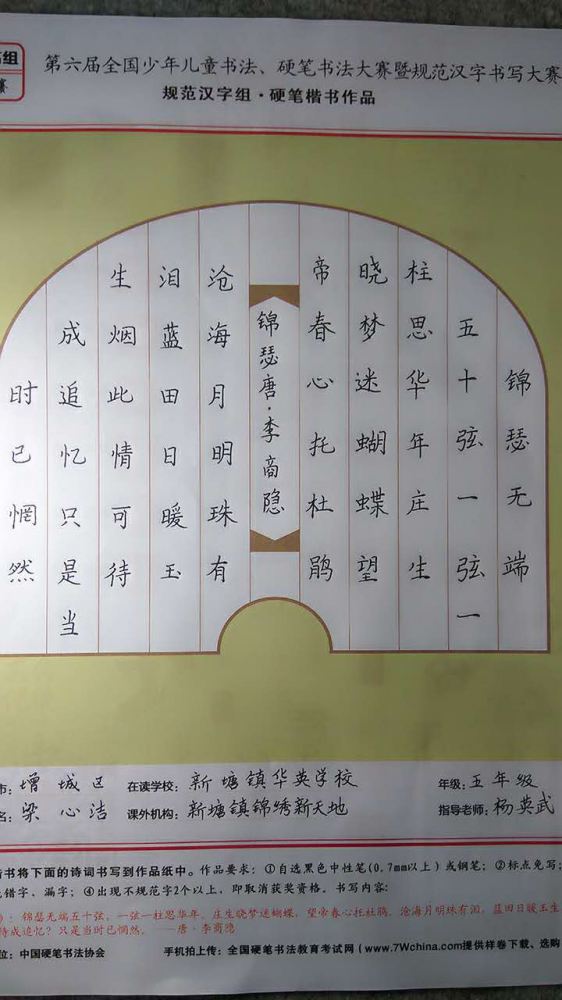 组
赛
第六届全国少年儿童书法、硬笔书法大赛暨规范汉字书写大赛
规范汉字组·硬笔楷书作品
锦瑟无端
五十弦一弦一
柱思华年庄生
晓梦迷蝴蝶望
帝春心托杜鹃
锦瑟唐·李商隐
沧海月明珠有
泪蓝田日暖玉
生烟此情可待
成追忆只是当
时已惘然
市:增城区 在读学校:新塘镇华英学校 年级:五年级
名:梁心洁 课外机构:新塘镇锦绣新天地 指导老师:杨英武
书将下面的诗词书写到作品纸中。作品要求:①自选黑色中性笔(0.7mm以上)或钢笔;②标点免写;
错字、漏字;④出现不规范字2个以上,即取消获奖资格。书写内容:
):锦瑟无端五十弦,一弦一柱思华年。庄生晓梦迷蝴蝶,望帝春心托杜鹃。沧海月明珠有泪,蓝田日暖玉生
待成追忆?只是当时已惘然。 ——唐·李商隐
位:中国硬笔书法协会 手机拍上传:全国硬笔书法教育考试网(www.7Wchina.com提供样卷下载、选购